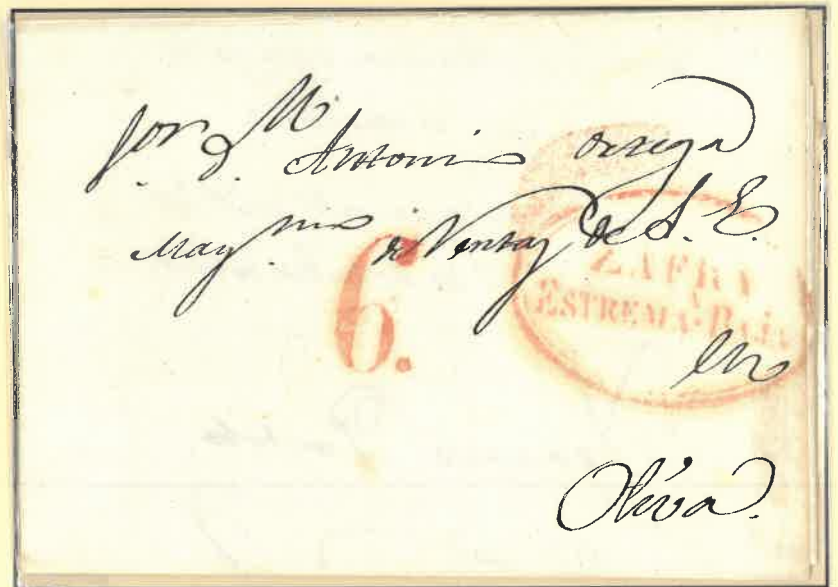 Sor. D. Antonio Ortega
May.mo de Rentas de S. E.
6.
ZAFRA
ESTREMA. BAJA
en
Oliva.